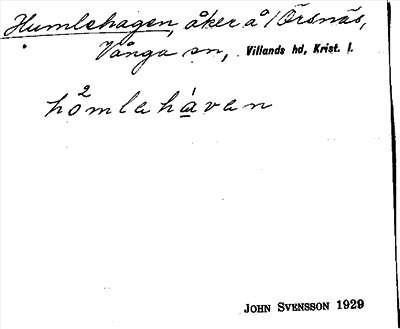 Humlehagen, åker å 1 Örsnäs,
Vånga sn, Villands hd, Krist. l.
hò²mlahàvan
JOHN SVENSSON 1929